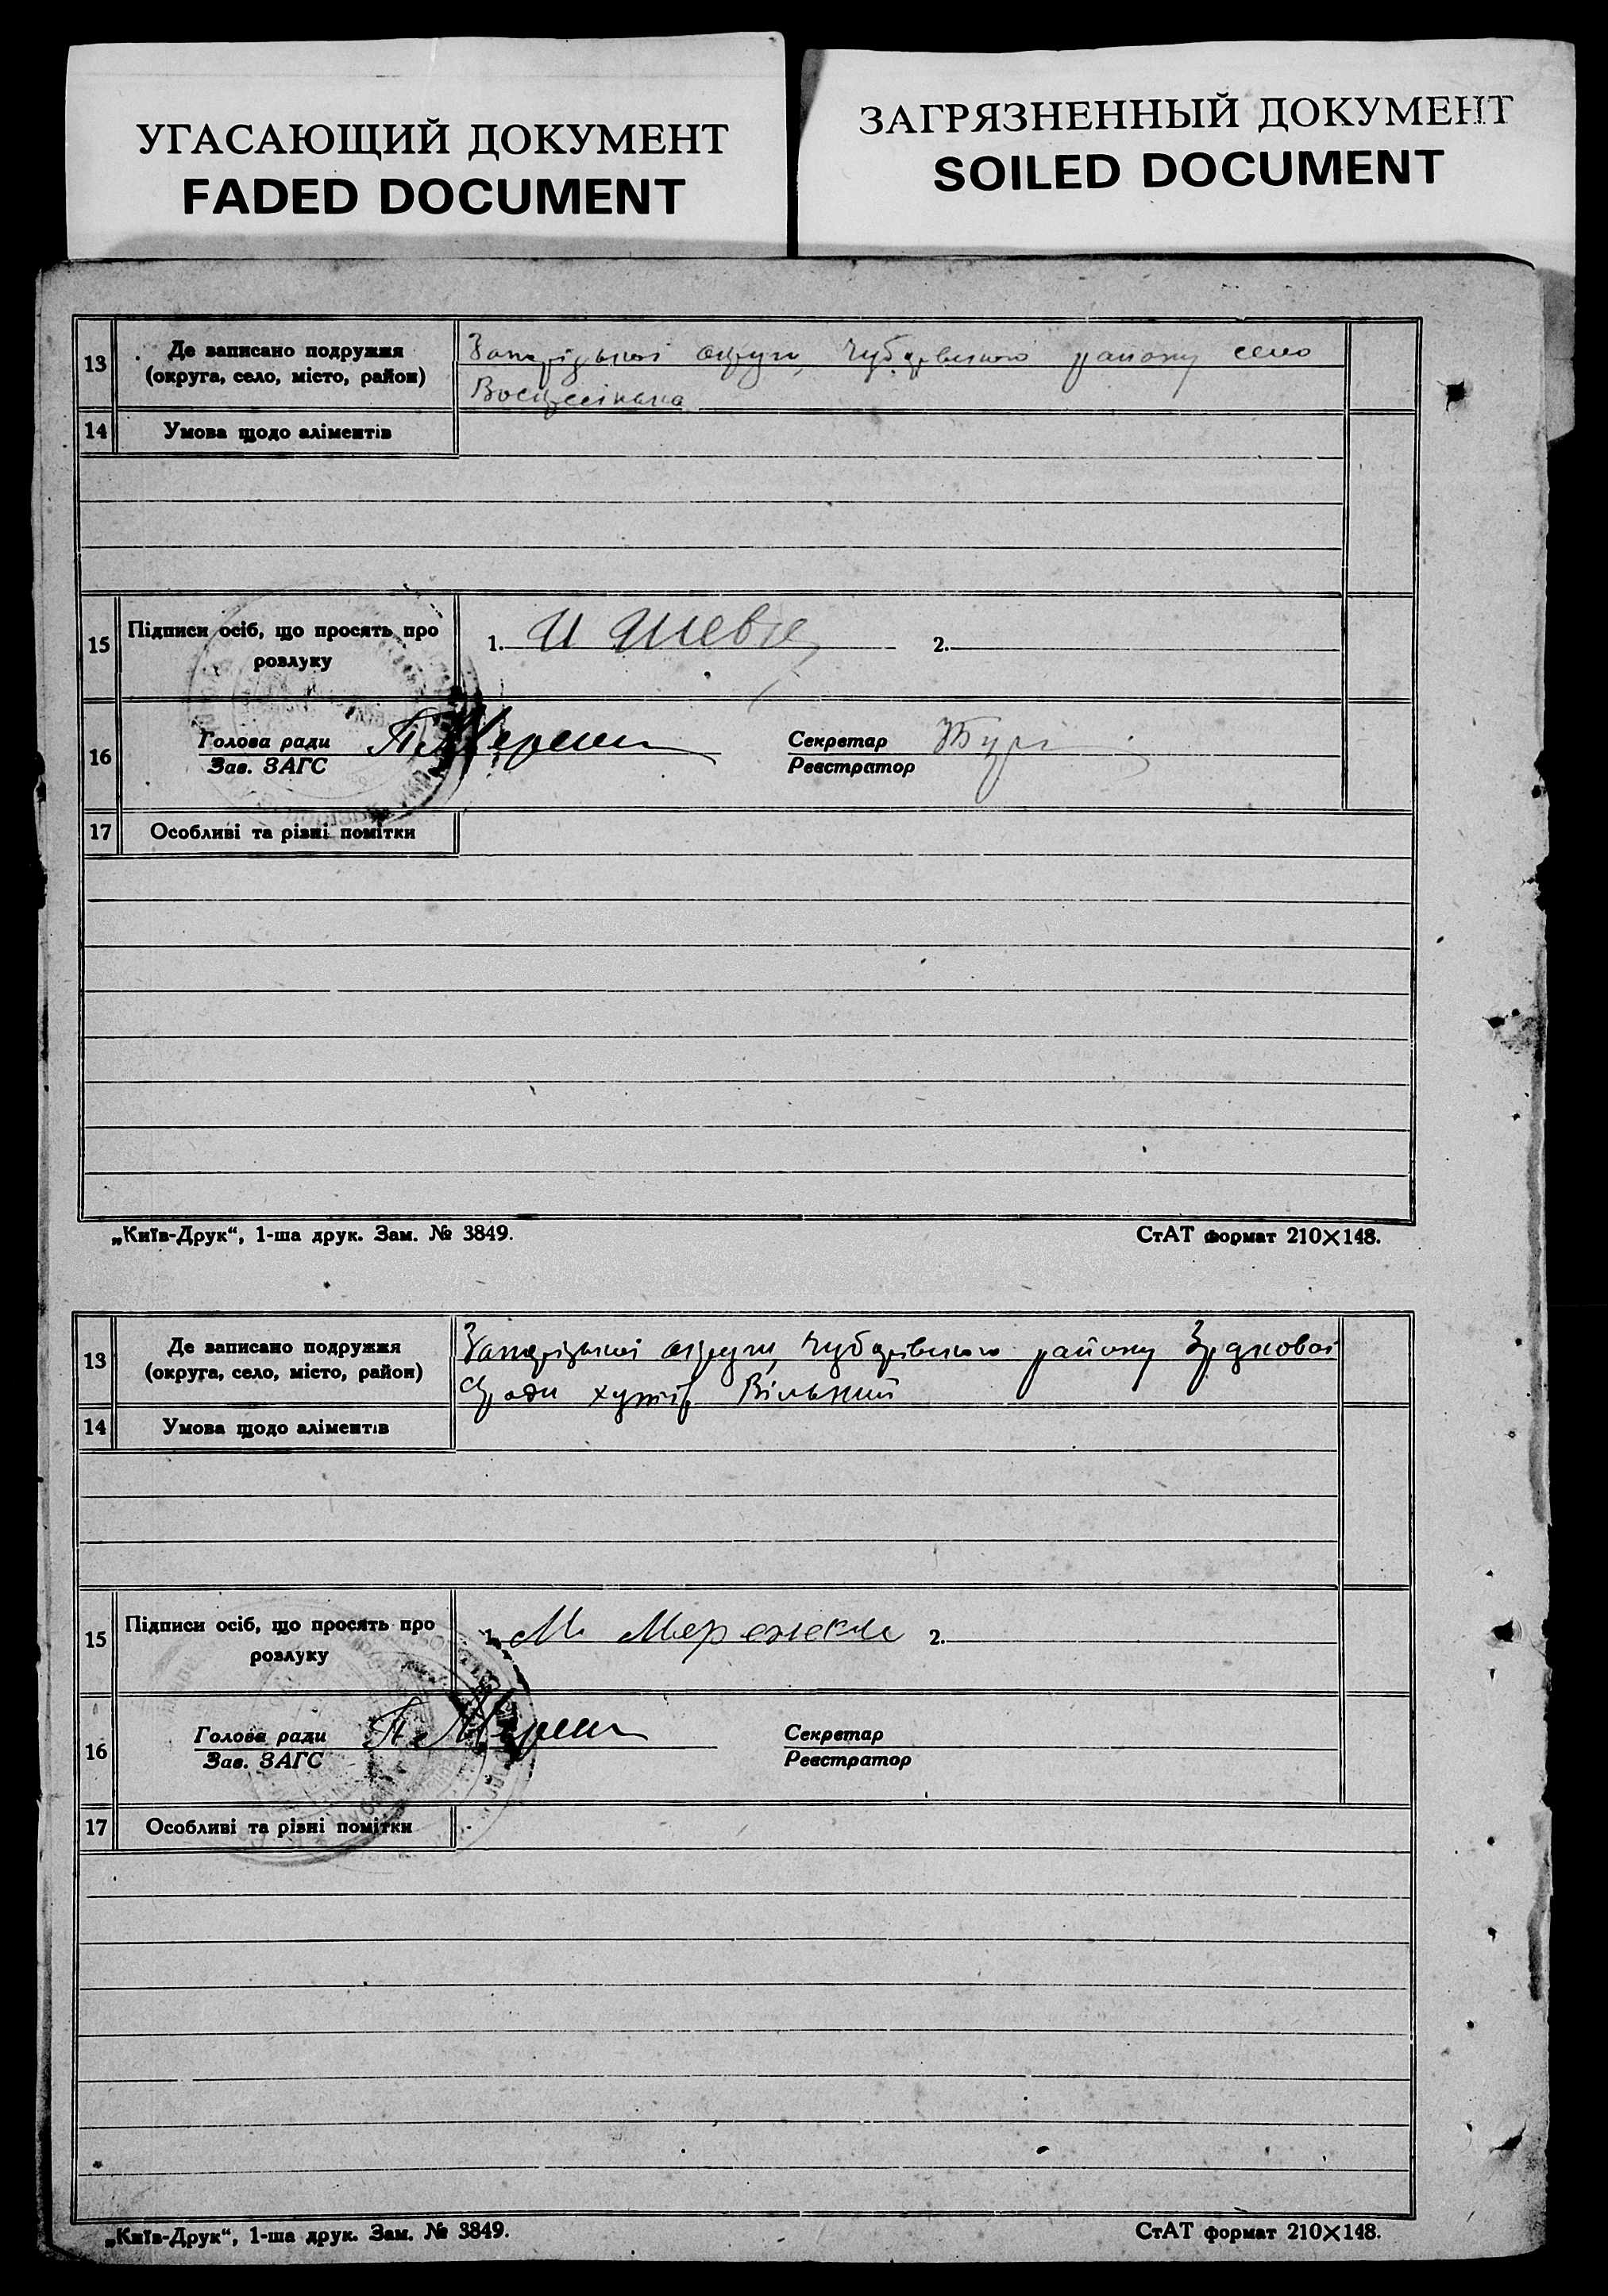 УГАСАЮЩИЙ ДОКУМЕНТ
FADED DOCUMENT
ЗАГРЯЗНЕННЫЙ ДОКУМЕНТ
SOILED DOCUMENT
13 Де записано подружжя (округа, село, місто, район)
Запорізької округи, Чубарівського району село
Воскресінька
14 Умова щодо аліментів
15 Підписи осіб, що просять про розлуку
1. И Шевч 2.
16 Голова ради
Зав. ЗАГС
Секретар
Реєстратор
17 Особливі та різні помітки
„Київ-Друк“, 1-ша друк. Зам. № 3849.
СтАТ формат 210×148.
13 Де записано подружжя (округа, село, місто, район)
Запорізької округи, Чубарівського району
ради хутір Вільний
14 Умова щодо аліментів
15 Підписи осіб, що просять про розлуку
1. М 2.
16 Голова ради
Зав. ЗАГС
Секретар
Реєстратор
17 Особливі та різні помітки
„Київ-Друк“, 1-ша друк. Зам. № 3849.
СтАТ формат 210×148.